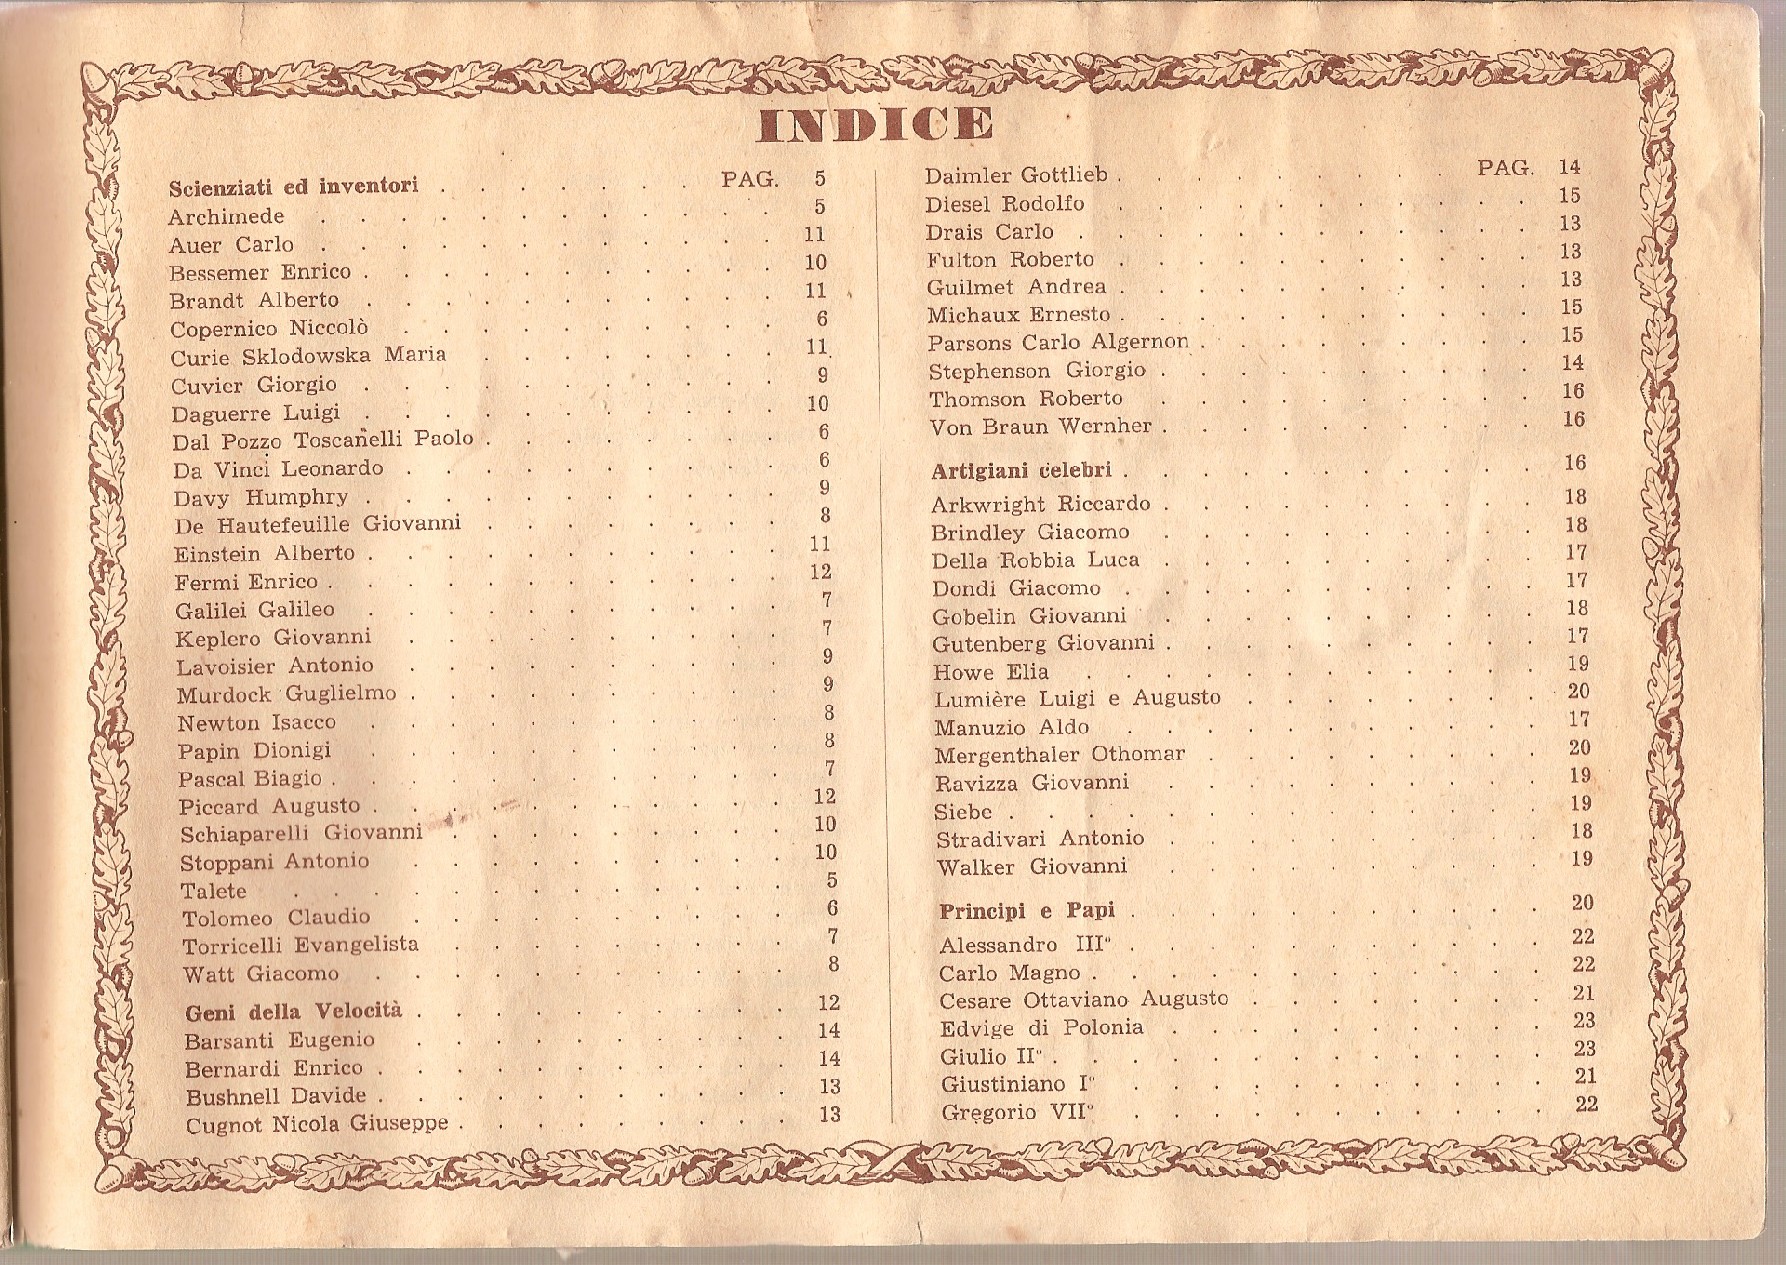 INDICE
Scienziati ed inventori . . . . . . . PAG. 5
Archimede 5
Auer Carlo 11
Bessemer Enrico 10
Brandt Alberto 11
Copernico Niccolò 6
Curie Sklodowska Maria 11
Cuvier Giorgio 9
Daguerre Luigi 10
Dal Pozzo Toscanelli Paolo 6
Da Vinci Leonardo 6
Davy Humphry 9
De Hautefeuille Giovanni 8
Einstein Alberto 11
Fermi Enrico 12
Galilei Galileo 7
Keplero Giovanni 7
Lavoisier Antonio 9
Murdock Guglielmo 9
Newton Isacco 8
Papin Dionigi 8
Pascal Biagio 7
Piccard Augusto 12
Schiaparelli Giovanni 10
Stoppani Antonio 10
Talete 5
Tolomeo Claudio 6
Torricelli Evangelista 7
Watt Giacomo 8
Geni della Velocità 12
Barsanti Eugenio 14
Bernardi Enrico 14
Bushnell Davide 13
Cugnot Nicola Giuseppe 13
Daimler Gottlieb PAG. 14
Diesel Rodolfo 15
Drais Carlo 13
Fulton Roberto 13
Guilmet Andrea 13
Michaux Ernesto 15
Parsons Carlo Algernon 15
Stephenson Giorgio 14
Thomson Roberto 16
Von Braun Wernher 16
Artigiani celebri 16
Arkwright Riccardo 18
Brindley Giacomo 18
Della Robbia Luca 17
Dondi Giacomo 17
Gobelin Giovanni 18
Gutenberg Giovanni 17
Howe Elia 19
Lumière Luigi e Augusto 20
Manuzio Aldo 17
Mergenthaler Othomar 20
Ravizza Giovanni 19
Siebe 19
Stradivari Antonio 18
Walker Giovanni 19
Principi e Papi 20
Alessandro III° 22
Carlo Magno 22
Cesare Ottaviano Augusto 21
Edvige di Polonia 23
Giulio II° 23
Giustiniano I° 21
Gregorio VII° 22